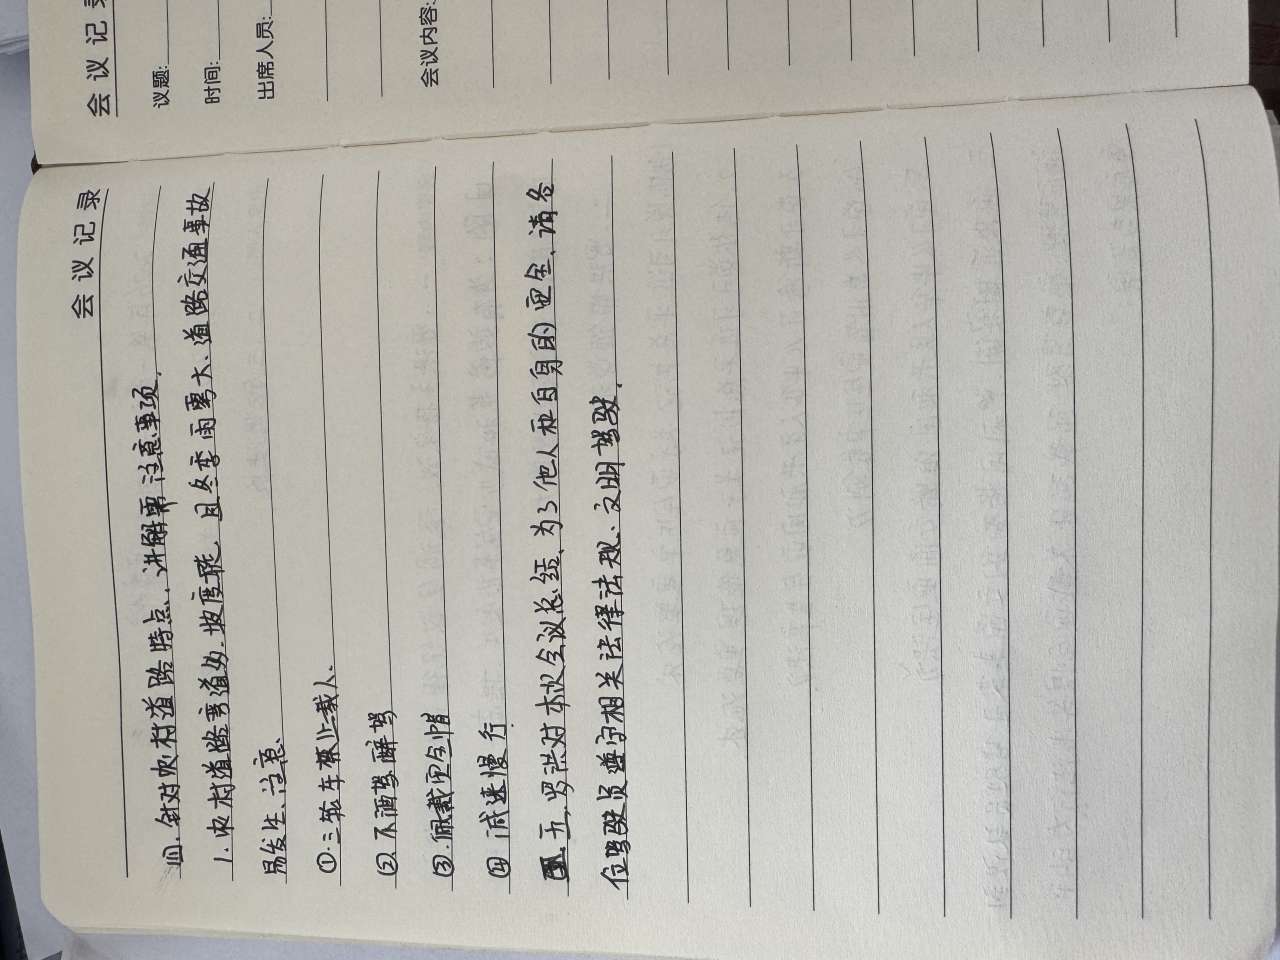 会议记录
议题:
时间:
出席人员:
会议内容:
会议记录
四.针对农村道路特点、讲解需注意事项.
1.农村道路弯道多.坡度陡.且冬季雨雾大、道路交通事故
易发生、注意、
①.三轮车禁止载人.
②.不酒驾醉驾
③.佩戴安全帽
④ 减速慢行
五.罗洪对本次会议总结、为了他人和自身的安全、请各
位驾驶员遵守相关法律法规、文明驾驶.